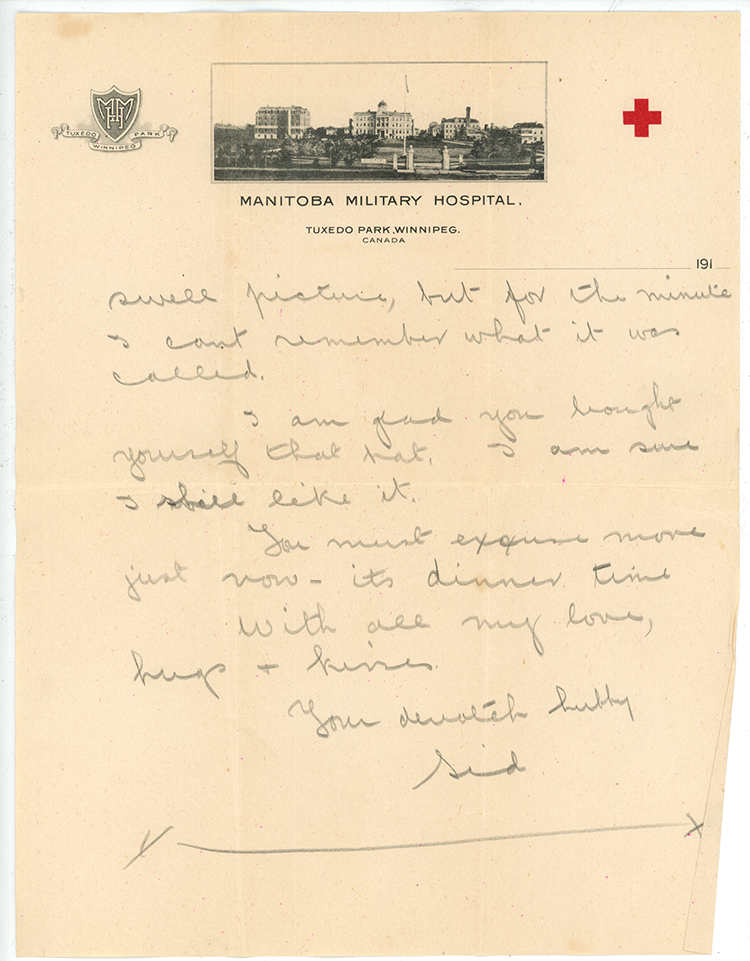 MHM
TUXEDO PARK
WINNIPEG
MANITOBA MILITARY HOSPITAL.
TUXEDO PARK, WINNIPEG.
CANADA
191
swell picture, but for the minute
I cant remember what it was
called.
I am glad you bought
yourself that hat. I am sure
I shill like it.
You must excuse more
just now - its dinner time
With all my love,
hugs + kisses
Your devoted hubby
Sid
X X